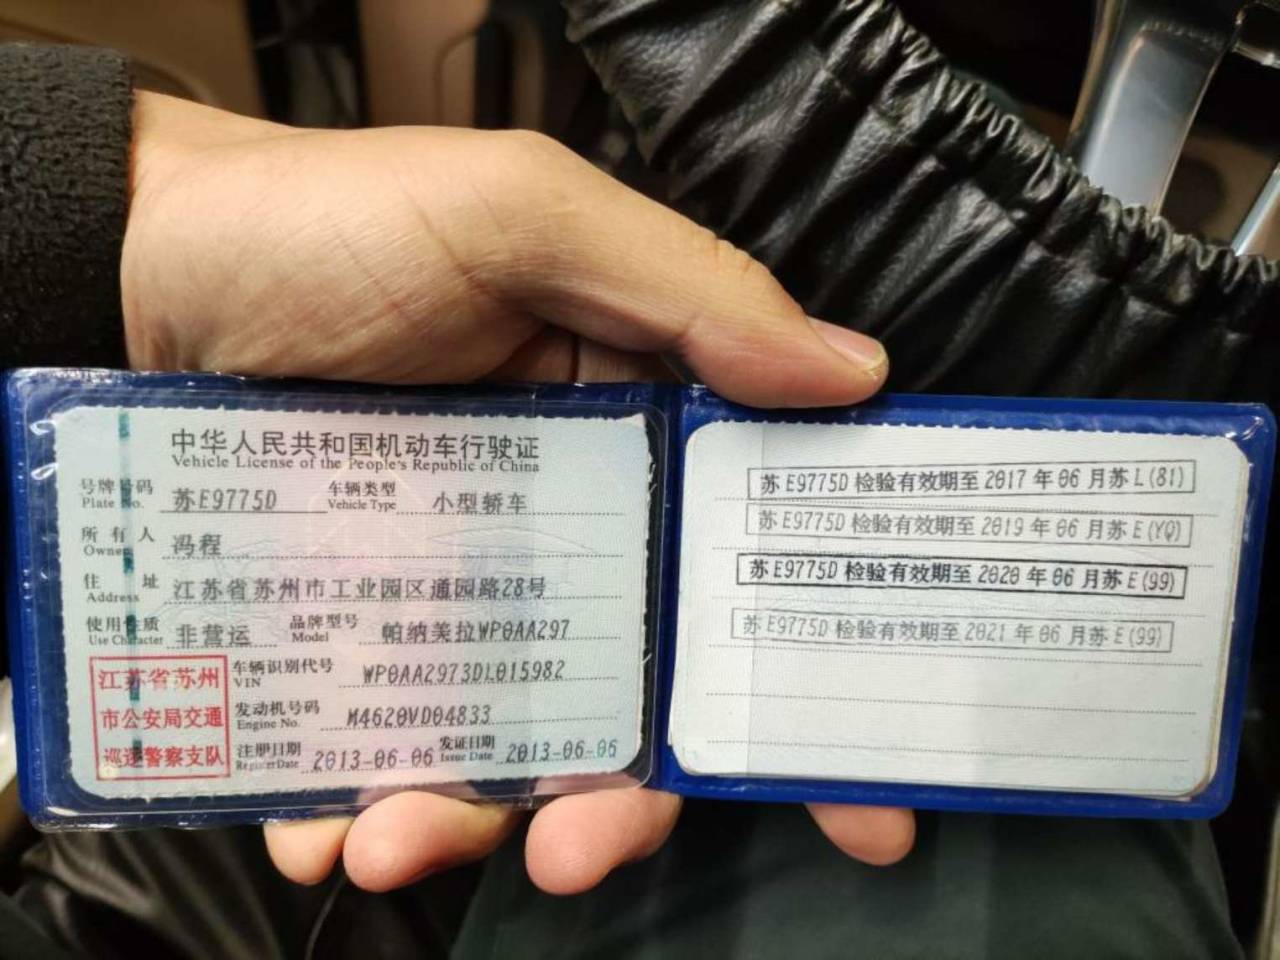 中华人民共和国机动车行驶证
Vehicle License of the People's Republic of China
号牌号码 Plate No. 苏E9775D 车辆类型 Vehicle Type 小型轿车
所有人 Owner 冯程
住址 Address 江苏省苏州市工业园区通园路28号
使用性质 Use Character 非营运 品牌型号 Model 帕纳美拉WP0AA297
江苏省苏州
市公安局交通
巡逻警察支队
车辆识别代号 VIN WP0AA2973DL015982
发动机号码 Engine No. M4620VD04833
注册日期 Register Date 2013-06-06 发证日期 Issue Date 2013-06-06
苏E9775D 检验有效期至 2017 年 06 月苏 L(81)
苏E9775D 检验有效期至 2019 年 06 月苏 E(YQ)
苏E9775D 检验有效期至 2020 年 06 月苏 E(99)
苏E9775D 检验有效期至 2021 年 06 月苏 E(99)